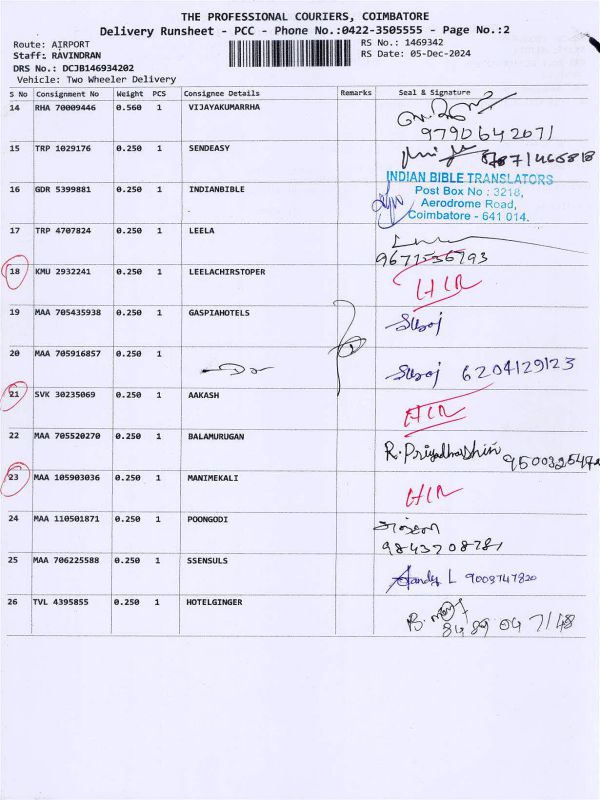 THE PROFESSIONAL COURIERS, COIMBATORE
Delivery Runsheet - PCC - Phone No.:0422-3505555 - Page No.:2
Route: AIRPORT RS No.: 1469342
Staff: RAVINDRAN RS Date: 05-Dec-2024
DRS No.: DCJB146934202
Vehicle: Two Wheeler Delivery
S No Consignment No Weight PCS Consignee Details Remarks Seal & Signature
14 RHA 70009446 0.560 1 VIJAYAKUMARRHA
9790642071
15 TRP 1029176 0.250 1 SENDEASY
16 GDR 5399881 0.250 1 INDIANBIBLE
INDIAN BIBLE TRANSLATORS
Post Box No : 3218,
Aerodrome Road,
Coimbatore - 641 014.
17 TRP 4707824 0.250 1 LEELA
18 KMU 2932241 0.250 1 LEELACHIRSTOPER HLR
19 MAA 705435938 0.250 1 GASPIAHOTELS Suroj
20 MAA 705916857 0.250 1 Do Suroj 6204129123
21 SVK 30235069 0.250 1 AAKASH HLR
22 MAA 705520270 0.250 1 BALAMURUGAN R. Priyadharshini
23 MAA 105903036 0.250 1 MANIMEKALI HLR
24 MAA 110501871 0.250 1 POONGODI
9843708781
25 MAA 706225588 0.250 1 SSENSULS Sandy L 9003747820
26 TVL 4395855 0.250 1 HOTELGINGER